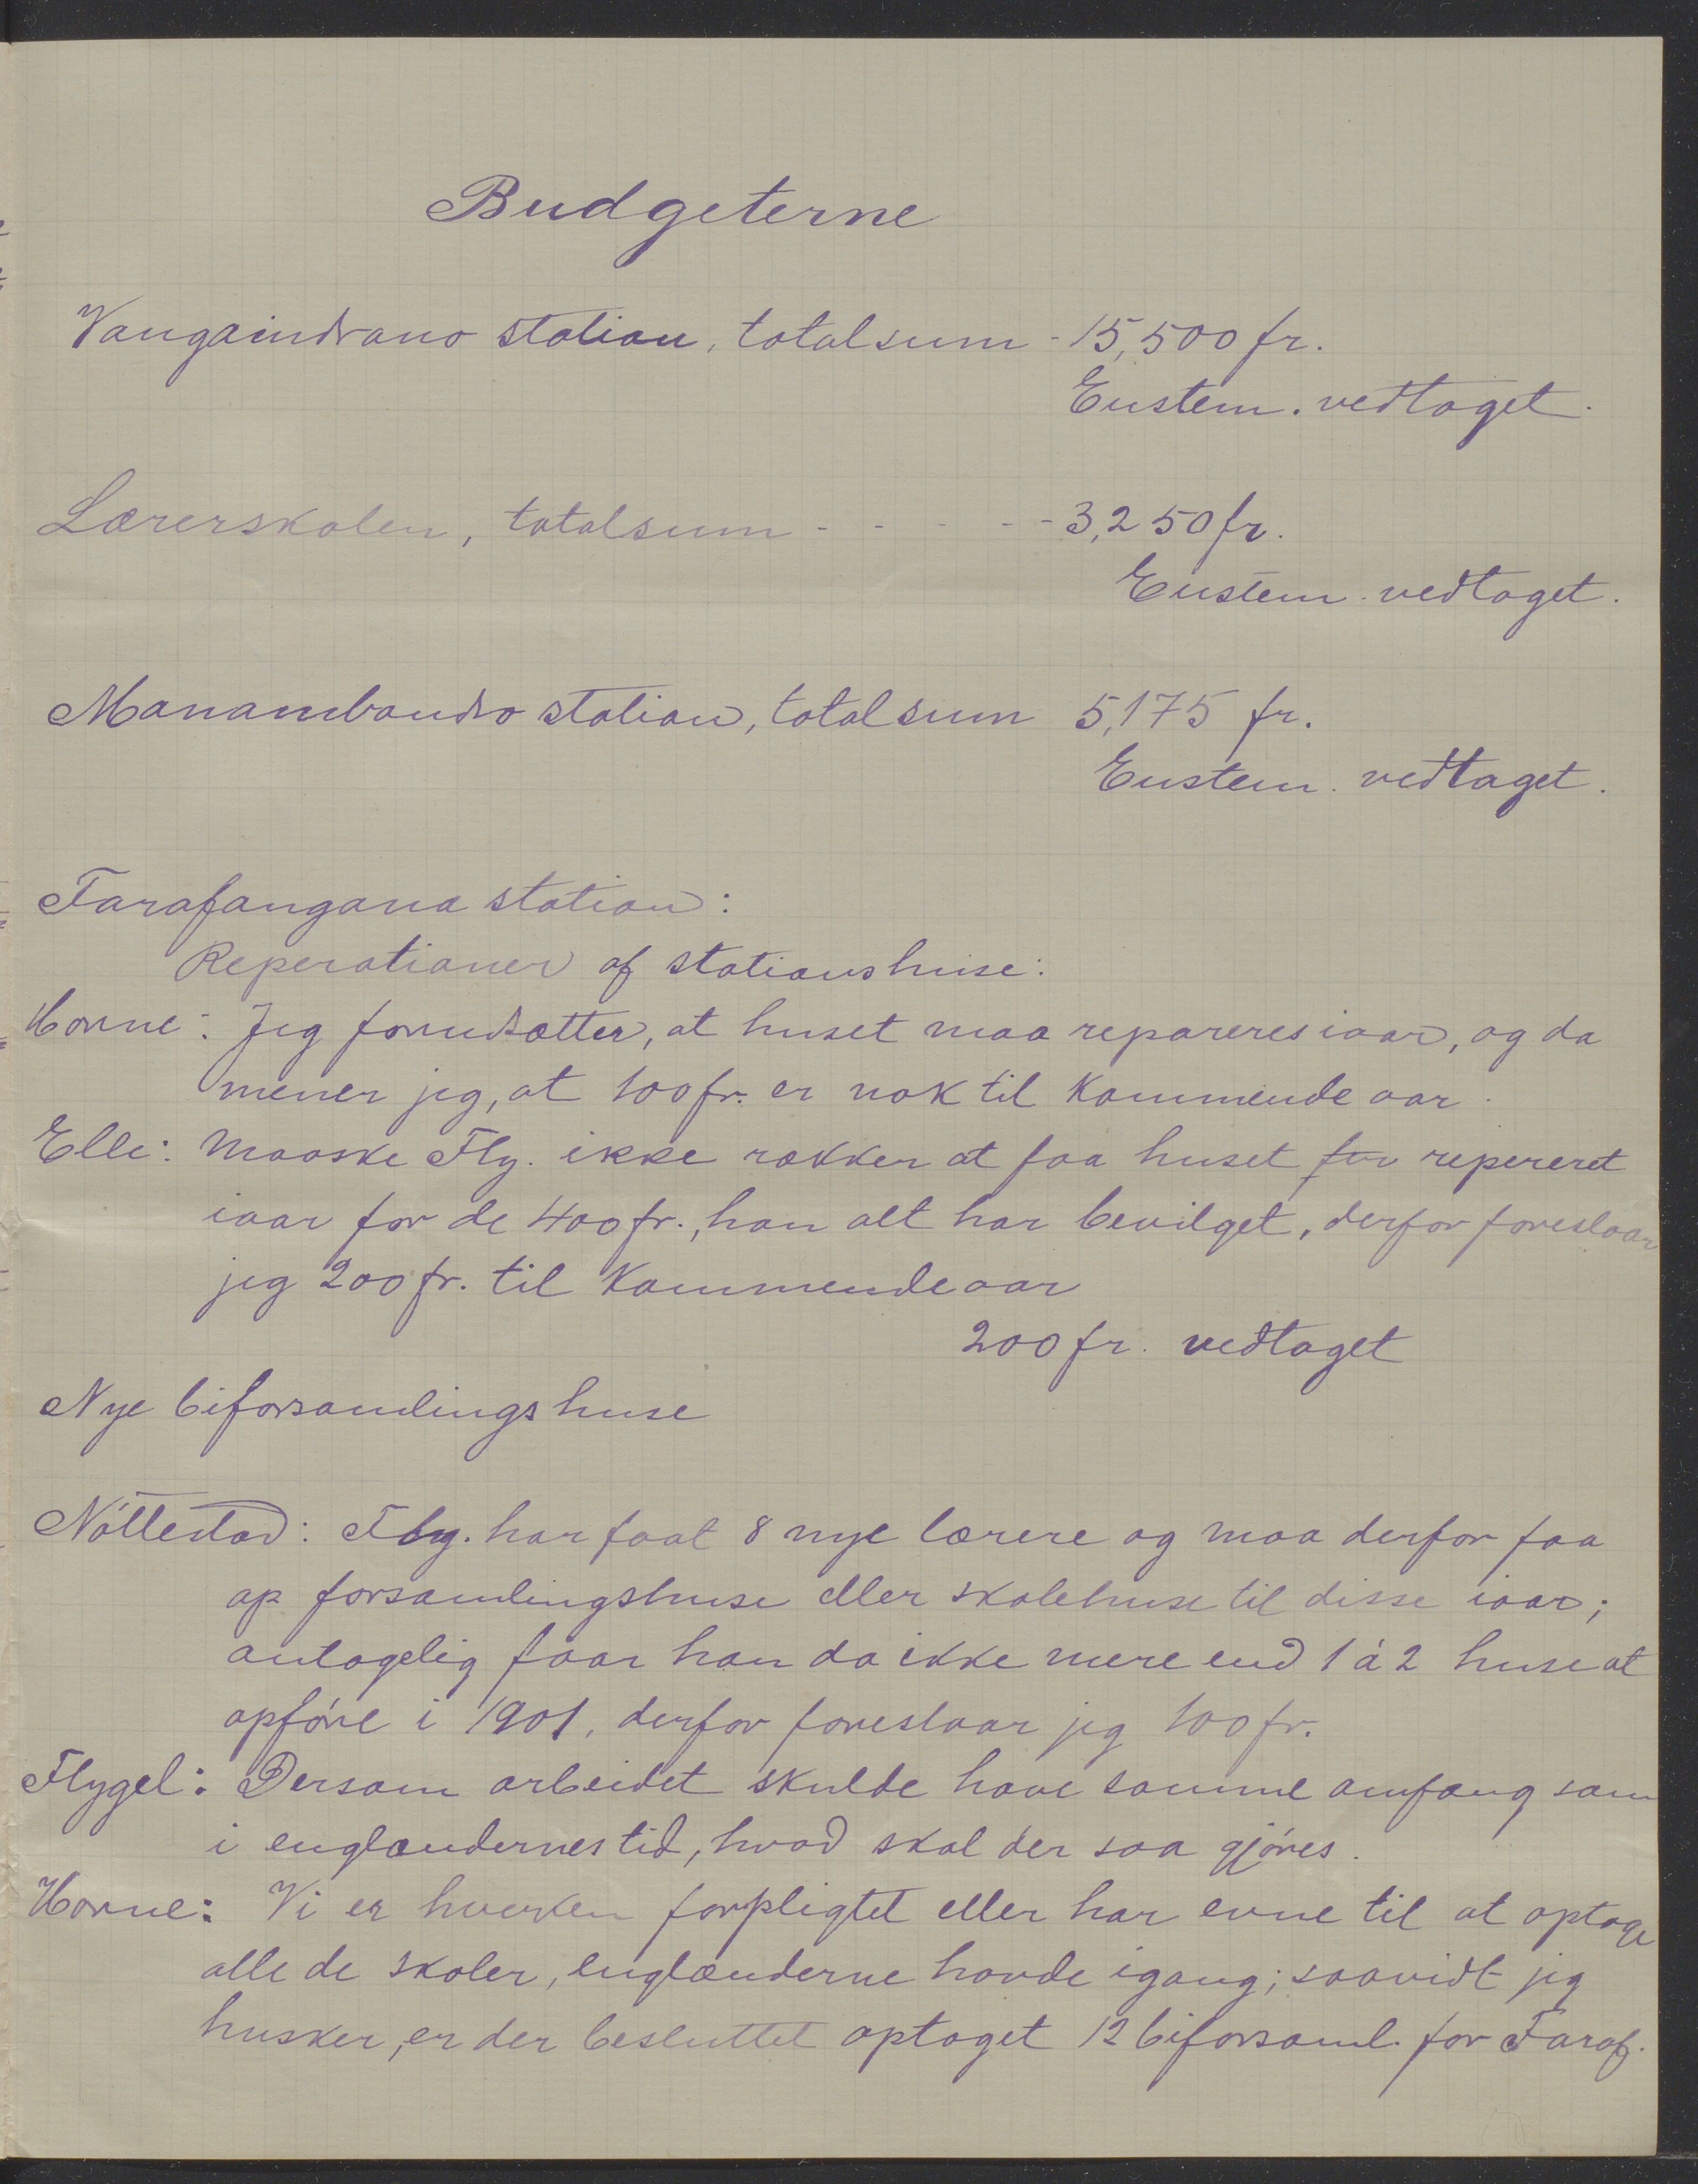 Budgeterne
Vangaindrano station, totalsum - 15,500 fr.
Enstem. vedtaget.
Lærerskolen, totalsum - - - - - 3,250 fr.
Enstem. vedtaget.
Manambondro station, totalsum 5,175 fr.
Enstem. vedtaget.
Farafangana station:
Reperationer af stationshuse:
Horne: Jeg forudsætter, at huset maa repareres iaar, og da
mener jeg, at 100 fr. er nok til kommende aar.
Elle: Maaske Flg. ikke rækker at faa huset for repereret
iaar for de 400 fr., han alt har bevilget, derfor foreslaar
jeg 200 fr. til kommende aar
200 fr. vedtaget
Nye biforsamlingshuse
Nöttestad: Flg. har faat 8 nye lærere og maa derfor faa
op forsamlingshuse eller skolehuse til disse iaar;
antagelig faar han da ikke mere end 1 à 2 huse at
opføre i 1901, derfor foreslaar jeg 100 fr.
Flygel: Dersom arbeidet skulde have samme omfang som
i englændernes tid, hvad skal der saa gjøres.
Horne: Vi er hverken forpligtet eller har evne til at optage
alle de skoler, englænderne havde igang; saavidt jeg
husker, er der besluttet optaget 12 biforsaml. for Faraf.